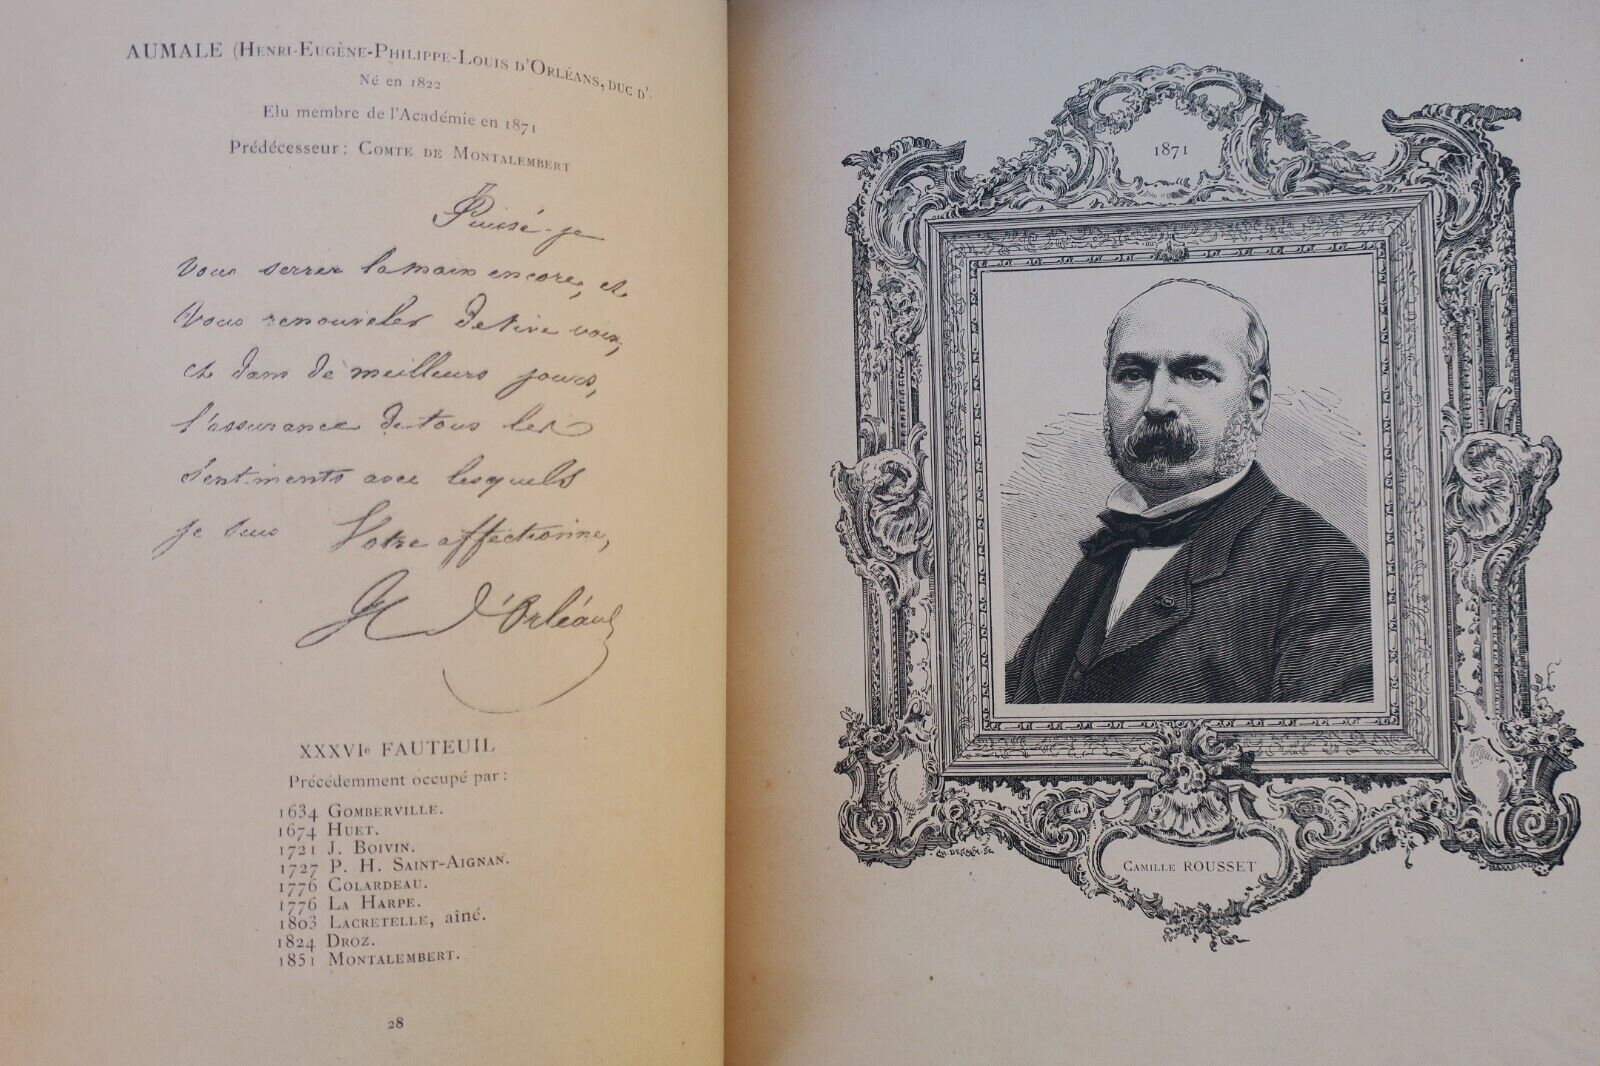 AUMALE (HENRI-EUGÈNE-PHILIPPE-LOUIS D'ORLÉANS, DUC D'
Né en 1822
Elu membre de l'Académie en 1871
Prédécesseur : COMTE DE MONTALEMBERT
Puissé-je
vous serrer la main encore, et
vous renouveler de vive voix,
et dans de meilleurs jours,
l'assurance de tous les
sentiments avec lesquels
je suis Votre affectionné,
H d'Orléans
XXXVIe FAUTEUIL
Précédemment occupé par :
1634 GOMBERVILLE.
1674 HUET.
1721 J. BOIVIN.
1727 P. H. SAINT-AIGNAN.
1776 COLARDEAU.
1776 LA HARPE.
1803 LACRETELLE, aîné.
1824 DROZ.
1851 MONTALEMBERT.
28
1871
CAMILLE ROUSSET